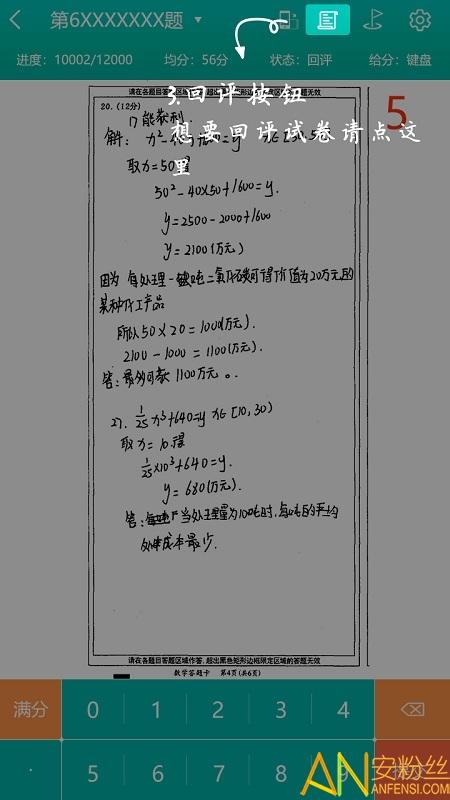 第6XXXXXXX题
进度：10002/12000 均分：56分 状态：回评 给分：键盘
请在各题目答
超出黑色矩形边框限定区域的答题无效
3.回评按钮
想要回评试卷请点这
里
5
20.（12分）
17能获利.
解：
取x=50得
50²-40×50+1600=y.
y=2500-2000+1600
y=2100(万元)
因为 每处理一吨二氧化碳可得价值为20万元的
某种化工产品
所以50×20=1000(万元).
2100-1000=1100(万元).
答：最多可 1100万元。
27. 1/25 x³+640=y x∈[10,30)
取x=10.得
1/25×10³+640=y.
y=680(万元).
答：当处理量为10吨时,每吨的平均
处理成本最少.
请在各题目答题区域作答，超出黑色矩形边框限定区域的答题无效
数学答题卡 第4页(共6页)
满分 0 1 2 3 4
· 5 6 7 8 9 提交
安粉丝
ANFENSI.COM